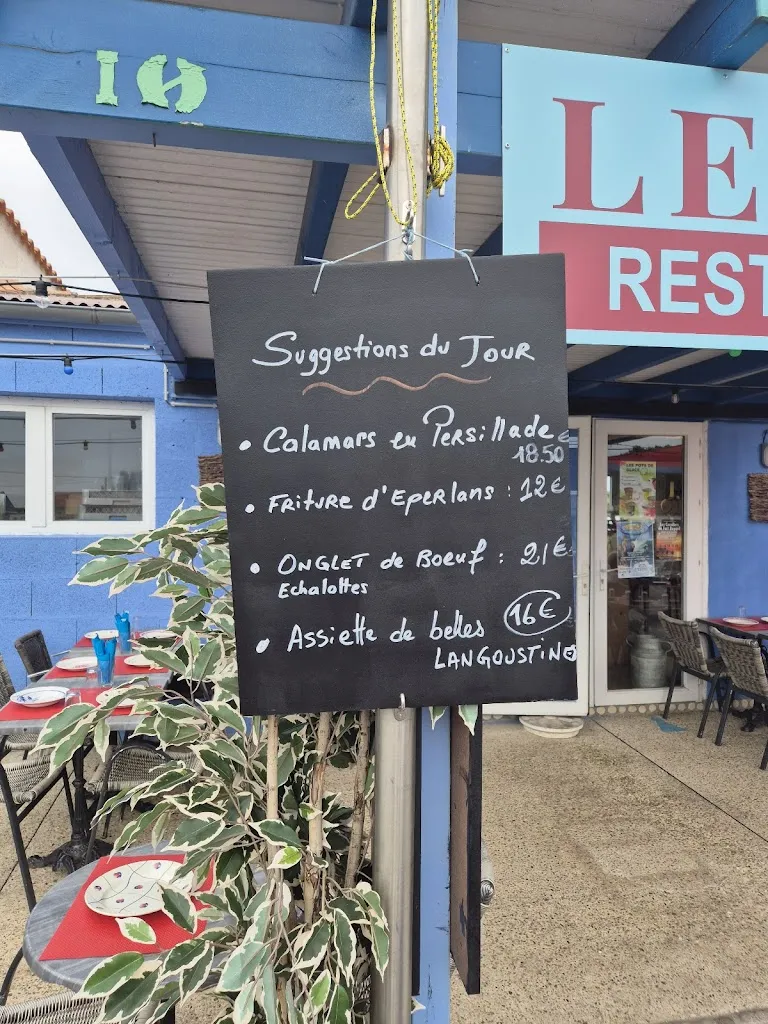 10
LE
REST
Suggestions du Jour
• Calamars en Persillade €
18.50
• Friture d'Eperlans : 12€
• Onglet de Boeuf : 21€
Echalottes
• Assiette de belles 16€
LANGOUSTINO